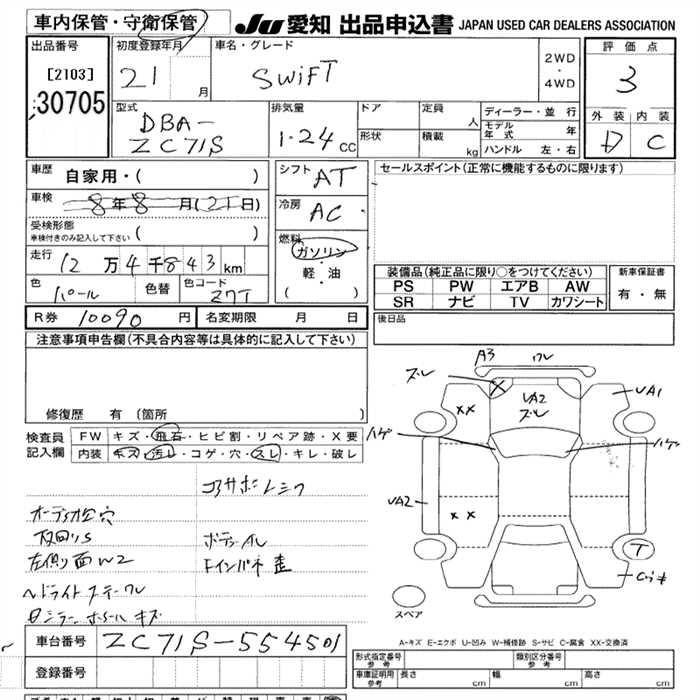 車内保管・守衛保管
JU 愛知 出品申込書 JAPAN USED CAR DEALERS ASSOCIATION
出品番号
[2103]
30705
初度登録年月
21 月
車名・グレード
SWIFT
2WD
・
4WD
評価点
3
外装 内装
D C
型式
DBA-
ZC71S
排気量
1.24 CC
ドア
形状
定員 人
積載 kg
ディーラー・並行
モデル年式 年
ハンドル 左・右
車歴 自家用・( )
車検 8年8月(21日)
受検形態
車検付きのみ記入して下さい ( )
走行 12万4千843km
色 パール 色替 色コード Z7T
シフト AT
冷房 AC
燃料
ガソリン
軽・油
( )
セールスポイント(正常に機能するものに限ります)
装備品(純正品に限り○をつけてください)
PS PW エアB AW
SR ナビ TV カワシート
新車保証書
有・無
R券 10090円 名変期限 月 日
後日品
注意事項申告欄(不具合内容等は具体的に記入して下さい)
修復歴 有(箇所 )
検査員
記入欄
FW キズ・飛石・ヒビ割・リペア跡・X要
内装 キズ・汚レ・コゲ・穴・スレ・キレ・破レ
オーディオ 穴
左側面W2
ヘッドライト
キズ
A3 ワレ
ズレ
XX
UA2
ズレ
UA1
ハゲ
ハゲ
UA2
XX
T
スペア
A-キズ E-エクボ U-凹み W-補修跡 S-サビ C-腐食 XX-交換済
車台番号 ZC71S-554501
登録番号
形式指定番号
参考
類別区分番号
参考
車庫証明用
参考
長さ cm 幅 cm 高さ cm